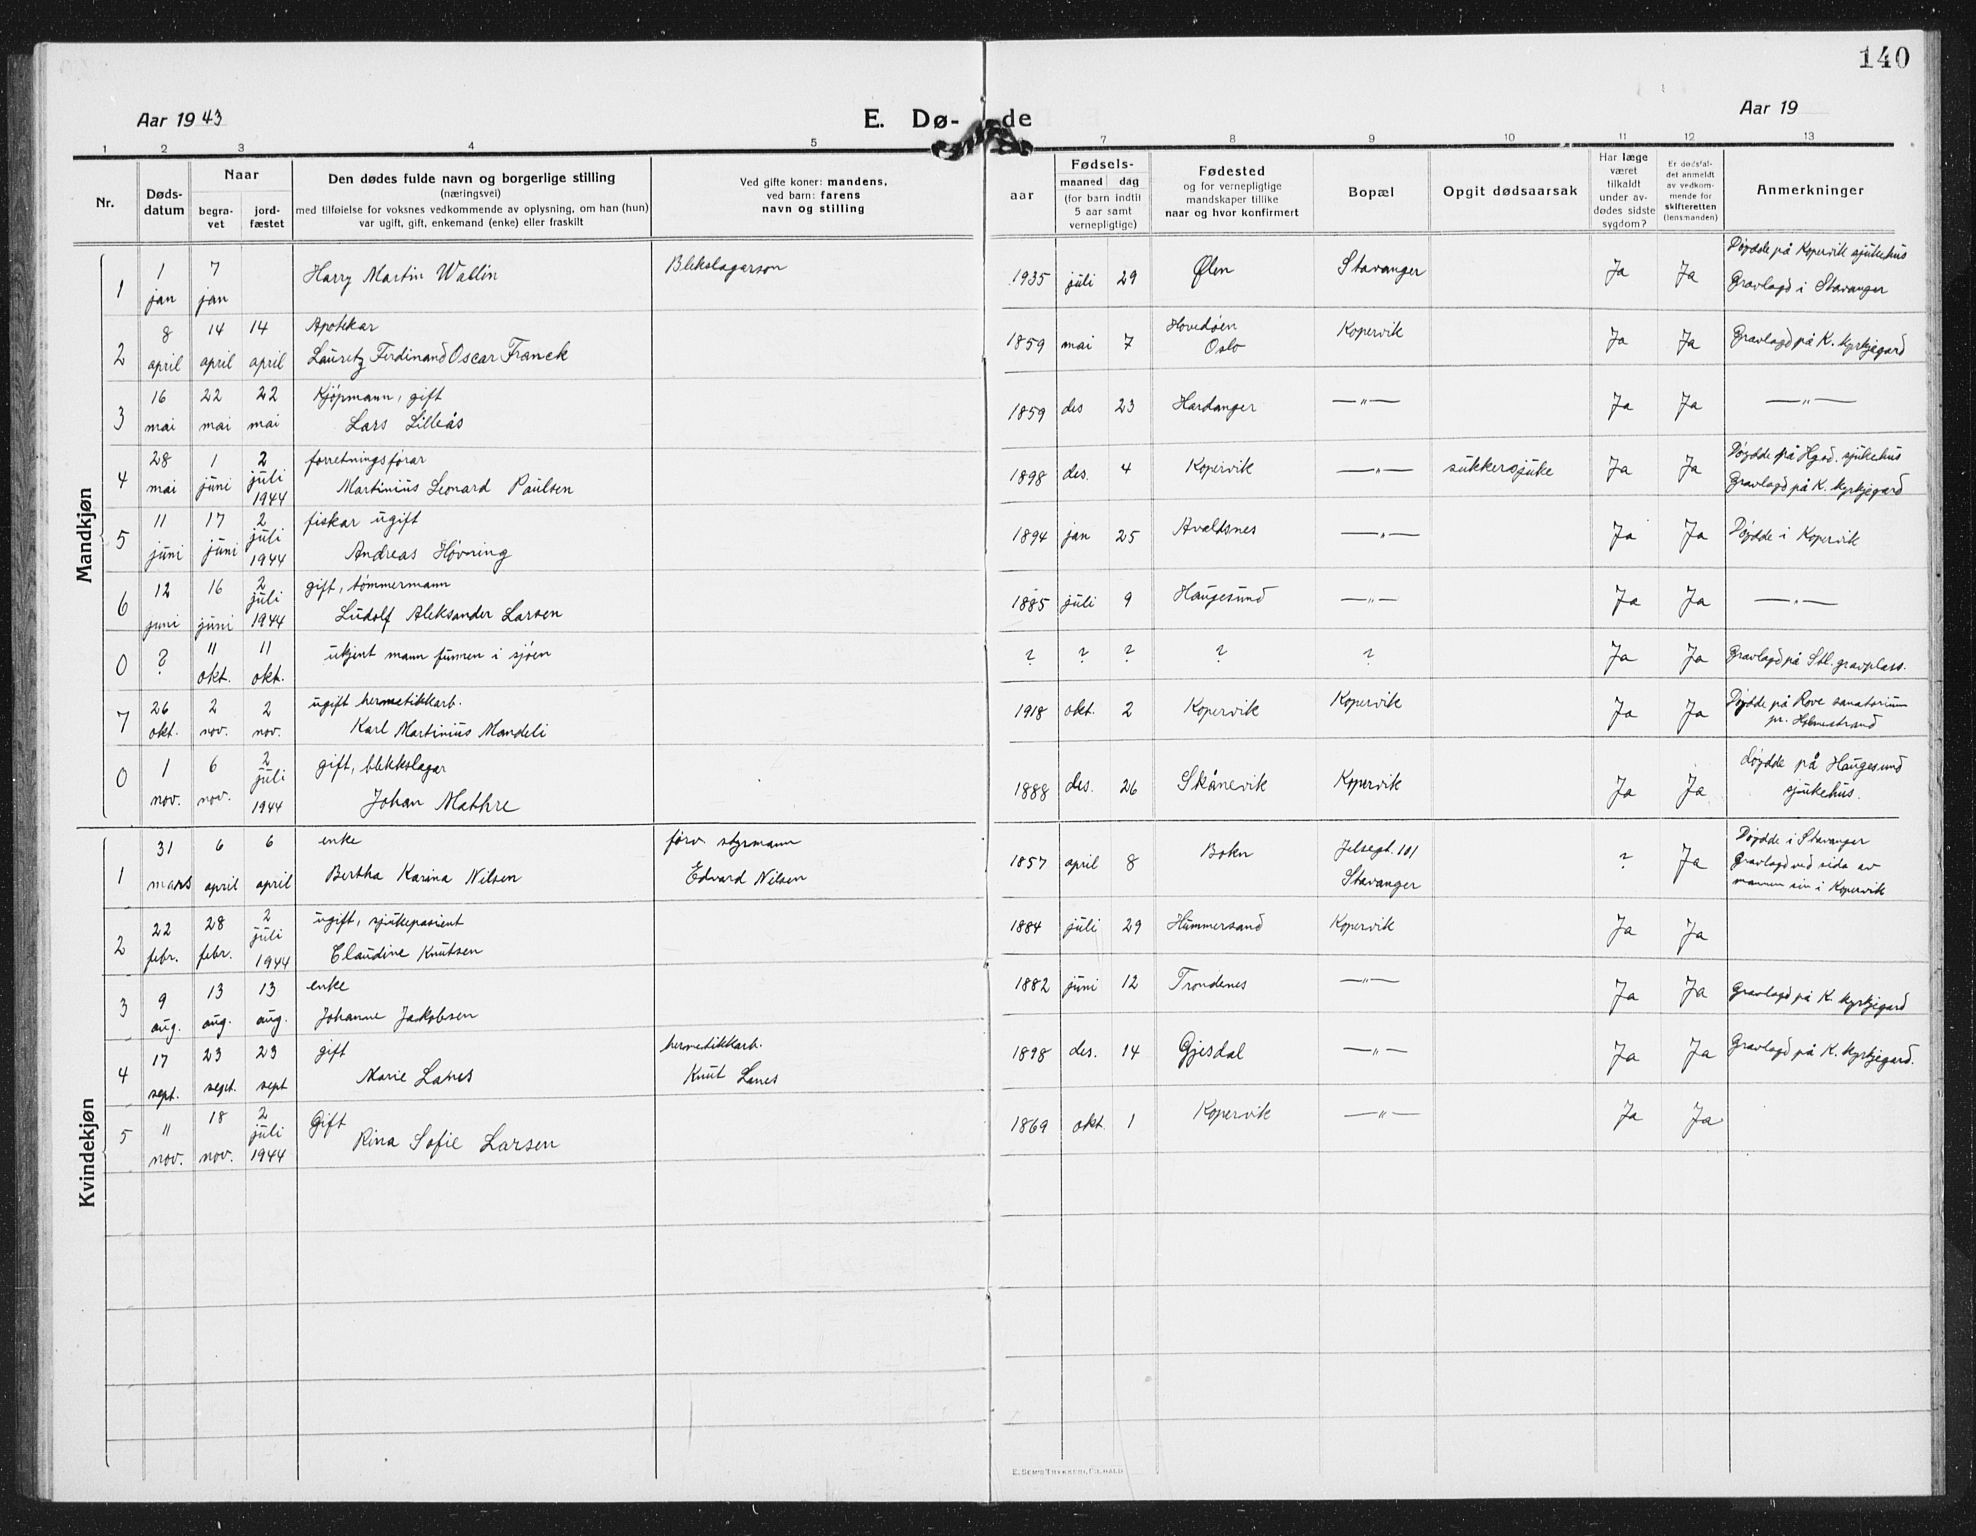 140
Aar 1943 E. Dø- de Aar 19
1 2 3 4 5 7 8 9 10 11 12 13
Nr.
Døds-
datum
Naar
begra-
vet
jord-
fæstet
Den dødes fulde navn og borgerlige stilling
(næringsvei)
med tilføielse for voksnes vedkommende av oplysning, om han (hun)
var ugift, gift, enkemand (enke) eller fraskilt
Ved gifte koner: mandens,
ved barn: farens
navn og stilling
Fødsels-
aar
maaned dag
(for barn indtil
5 aar samt
vernepligtige)
Fødested
og for vernepligtige
mandskaper tillike
naar og hvor konfirmert
Bopæl
Opgit dødsaarsak
Har læge
været
tilkaldt
under av-
dødes sidste
sygdom?
Er dødsfal-
det anmeldt
av vedkom-
mende for
skifteretten
(lensmanden)
Anmerkninger
Mandkjøn
1 1 jan 7 jan Harry Martin Wallin Blekslagarson 1935 juli 29 Ølen Stavanger Ja Ja Døydde på Kopervik sjukehus
Gravlagd i Stavanger
2 8 april 14 april 14 april Apotekar
Lauretz Ferdinand Oscar Franck 1859 mai 7 Hovedøen
Oslo Kopervik Ja Ja Gravlagd på K. kyrkjegard
3 16 mai 22 mai 22 mai Kjøpmann, gift
Lars Lilleås 1859 des 23 Hardanger —"— Ja Ja —"—
4 28 mai 1 juni 2 juli 1944 forretningsførar
Martinius Leonard Paulsen 1898 des. 4 Kopervik —"— sukkersjuke Ja Ja Døydde på Hgsd. sjukehus
Gravlagd på K. kyrkjegard
5 11 juni 17 juni 2 juli 1944 fiskar ugift
Andreas Høvning 1894 jan 25 Avaldsnes —"— Ja Ja Døydde i Kopervik
6 12 juni 16 juni 2 juli 1944 gift, tømmermann
Ludolf Aleksander Larsen 1885 juli 9 Haugesund —"— Ja Ja —"—
0 ? 11 okt. 11 okt. ukjent mann funnen i sjøen ? ? ? ? ? Ja Ja Gravlagd på Stl. gravplass.
7 26 okt. 2 nov. 2 nov. ugift hermetikkarb.
Karl Martinius Mandeli 1918 okt. 2 Kopervik Kopervik Ja Ja Døydde på Rove sanatorium
pr. Holmestrand
0 1 nov. 6 nov. 2 juli 1944 gift, blekkslagar
Johan Mathre 1888 des. 26 Skånevik Kopervik Ja Ja Døydde på Haugesund
sjukehus.
Kvindekjøn
1 31 mars 6 april 6 april enke
Bertha Karina Nilsen førv. styrmann
Edvard Nilsen 1857 april 8 Bokn Jelsegt. 101
Stavanger ? Ja Døydde i Stavanger
Gravlagd ved sida av
mannen sin i Kopervik
2 22 febr. 28 febr. 2 juli 1944 ugift, sjukepasient
Claudine Knutsen 1884 juli 29 Hummersand Kopervik Ja Ja
3 9 aug. 13 aug. 13 aug. enke
Johanne Jakobsen 1882 juni 12 Trondenes —"— Ja Ja Gravlagd på K. kyrkjegard
4 17 sept. 23 sept. 23 sept gift
Marie Lanes hermetikkarb.
Knut Lanes 1898 des. 14 Gjesdal —"— Ja Ja Gravlagd på K. kyrkjegard.
5 11 nov. 18 nov. 2 juli 1944 Gift
Rina Sofie Larsen 1869 okt. 1 Kopervik —"— Ja Ja